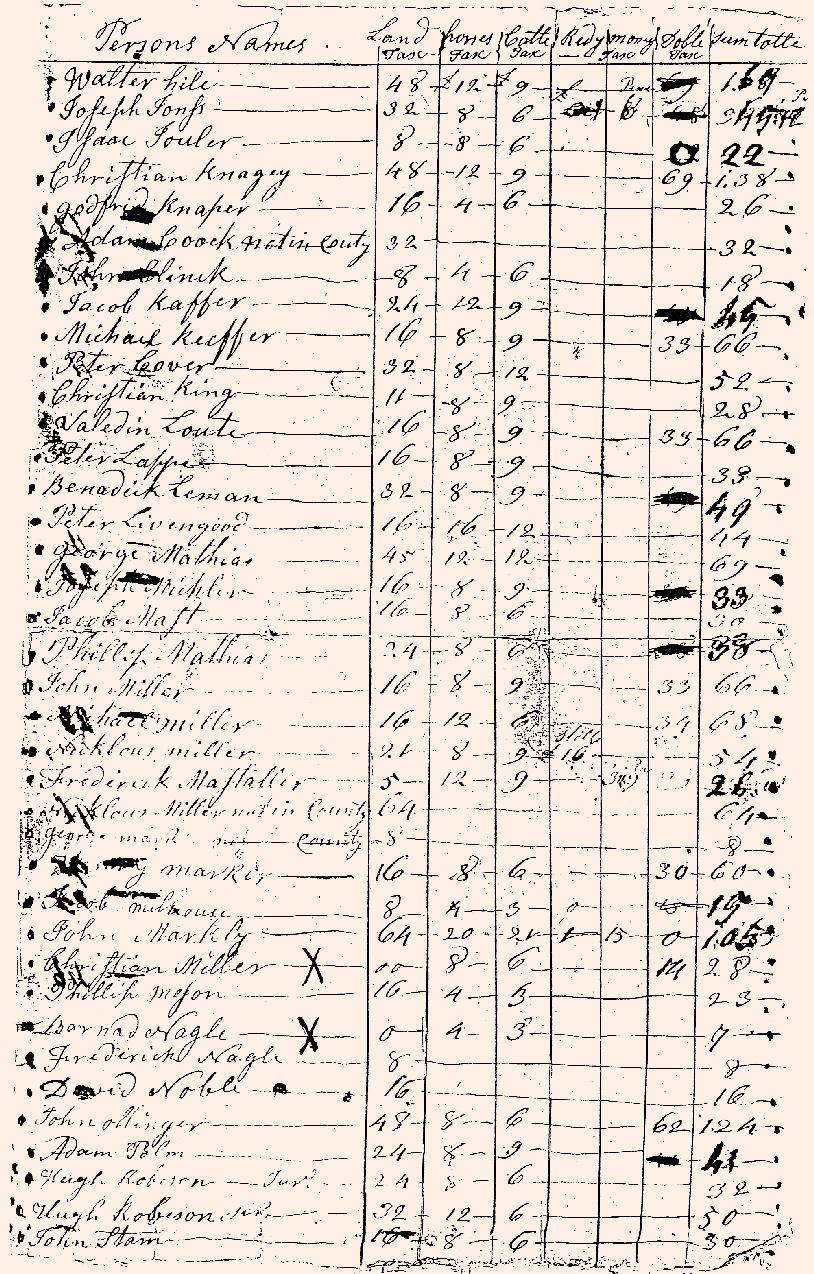 Persons Names. Land Tax horses Tax Catle Tax Redy mony Tax Doble Tax Sum totle
Walter hile 48 12 9
Joseph Jonss 32 8 6
Isaac Jouler 8 8 6 0 22
Christian Knagey 48 12 9 69 138
godfrid Knaper 16 4 6 26
Adam Coock not in Couty 32 32
John Clinck 8 4 6 18
Jacob Kaffer 24 12 9 45
Michael Keeffer 16 8 9 33 66
Peter Cover 32 8 12 52
Christian King 11 8 9 28
Valedin Loute 16 8 9 33 66
Peter Lappe 16 8 9 33
Benedick Leman 32 8 9 49
Peter Livengood 16 16 12 44
george Mathias 45 12 12 69
Joseph Mishler 16 8 9 33
Jacob Mast 16 8 6 30
Phillip Mathias 24 8 6 38
John Miller 16 8 9 33 66
Michael miller 16 12 6 34 68
Nicklous miller 21 8 9 16 54
Frederick Mastaller 5 12 9 26
Nicklous Miller not in County 64 64
George mark not County 8 8
markir 16 8 6 30 60
Jacob milhouse 8 4 3 0 15
John Markly 64 20 21 1 15 0 105
Christian Miller X 00 8 6 14 28
Phillip meson 16 4 3 23
Barnad Nagle X 0 4 3 7
Frederick Nagle 8 8
David Noble 16 16
John ollinger 48 8 6 62 124
Adam Palm 24 8 9 41
Hugh Robeson Jur 24 8 6 32
Hugh Robeson sir 32 12 6 50
John Stam 16 8 6 30